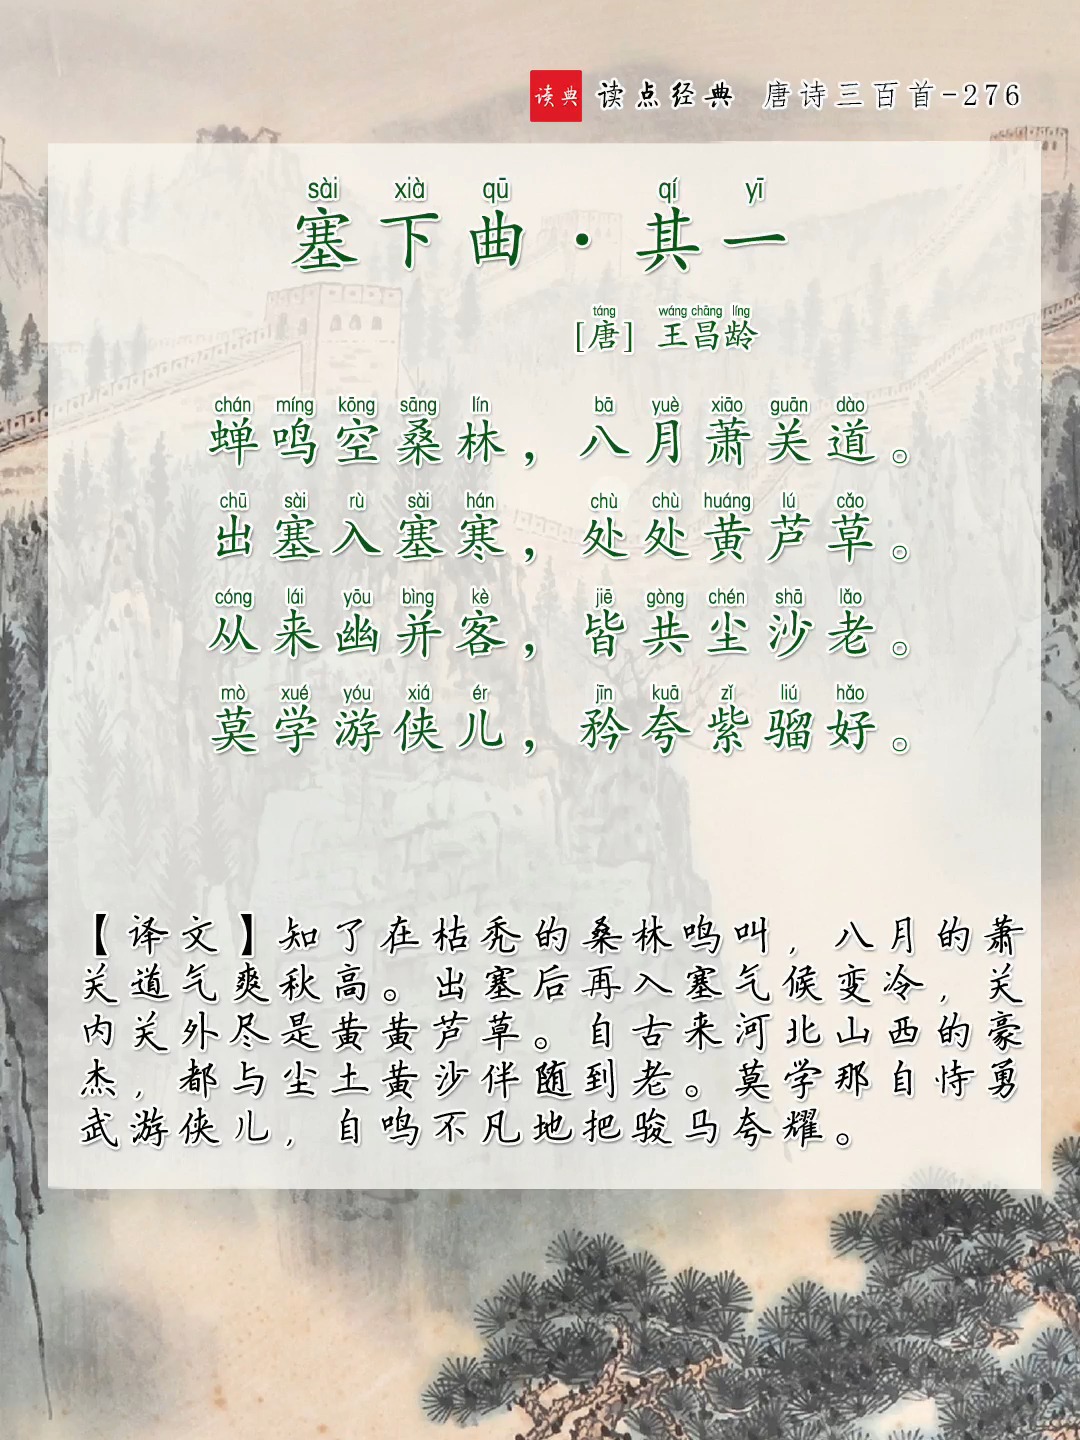 读典 读点经典 唐诗三百首-276
sài xià qū qí yī
塞下曲·其一
táng wáng chāng líng
[唐] 王昌龄
chán míng kōng sāng lín bā yuè xiāo guān dào
蝉鸣空桑林，八月萧关道。
chū sài rù sài hán chù chù huáng lú cǎo
出塞入塞寒，处处黄芦草。
cóng lái yōu bìng kè jiē gòng chén shā lǎo
从来幽并客，皆共尘沙老。
mò xué yóu xiá ér jīn kuā zǐ liú hǎo
莫学游侠儿，矜夸紫骝好。
【译文】知了在枯秃的桑林鸣叫，八月的萧
关道气爽秋高。出塞后再入塞气候变冷，关
内关外尽是黄黄芦草。自古来河北山西的豪
杰，都与尘土黄沙伴随到老。莫学那自恃勇
武游侠儿，自鸣不凡地把骏马夸耀。